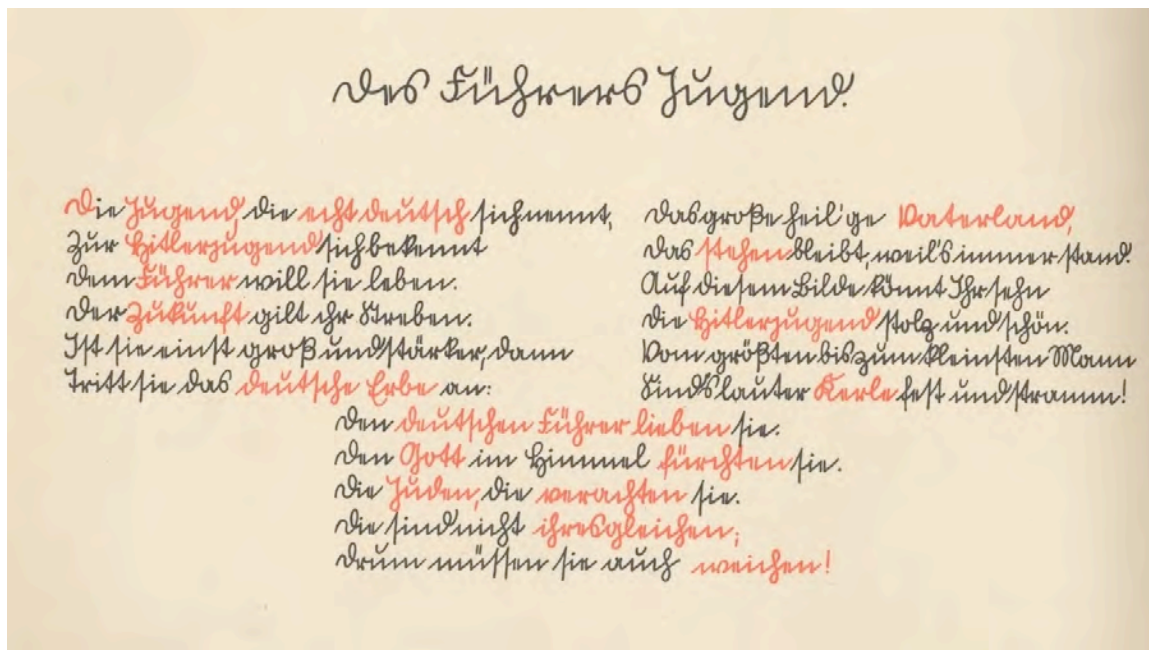 Des Führers Jugend.
Die Jugend, die echt deutsch sich nennt,
Zur Hitlerjugend sich bekennt
Dem Führer will sie leben.
Der Zukunft gilt ihr Streben.
Ist sie einst groß und stärker, dann
Tritt sie das deutsche Erbe an:
Das große heil'ge Vaterland,
Das stehen bleibt, weil's immer stand.
Auf diesem Bilde könnt Ihr sehn
Die Hitlerjugend stolz und schön.
Vom größten bis zum kleinsten Mann
Sind's lauter Kerle fest und stramm!
Den deutschen Führer lieben sie.
Den Gott im Himmel fürchten sie.
Die Juden, die verachten sie.
Die sind nicht ihresgleichen;
Drum müssen sie auch weichen!